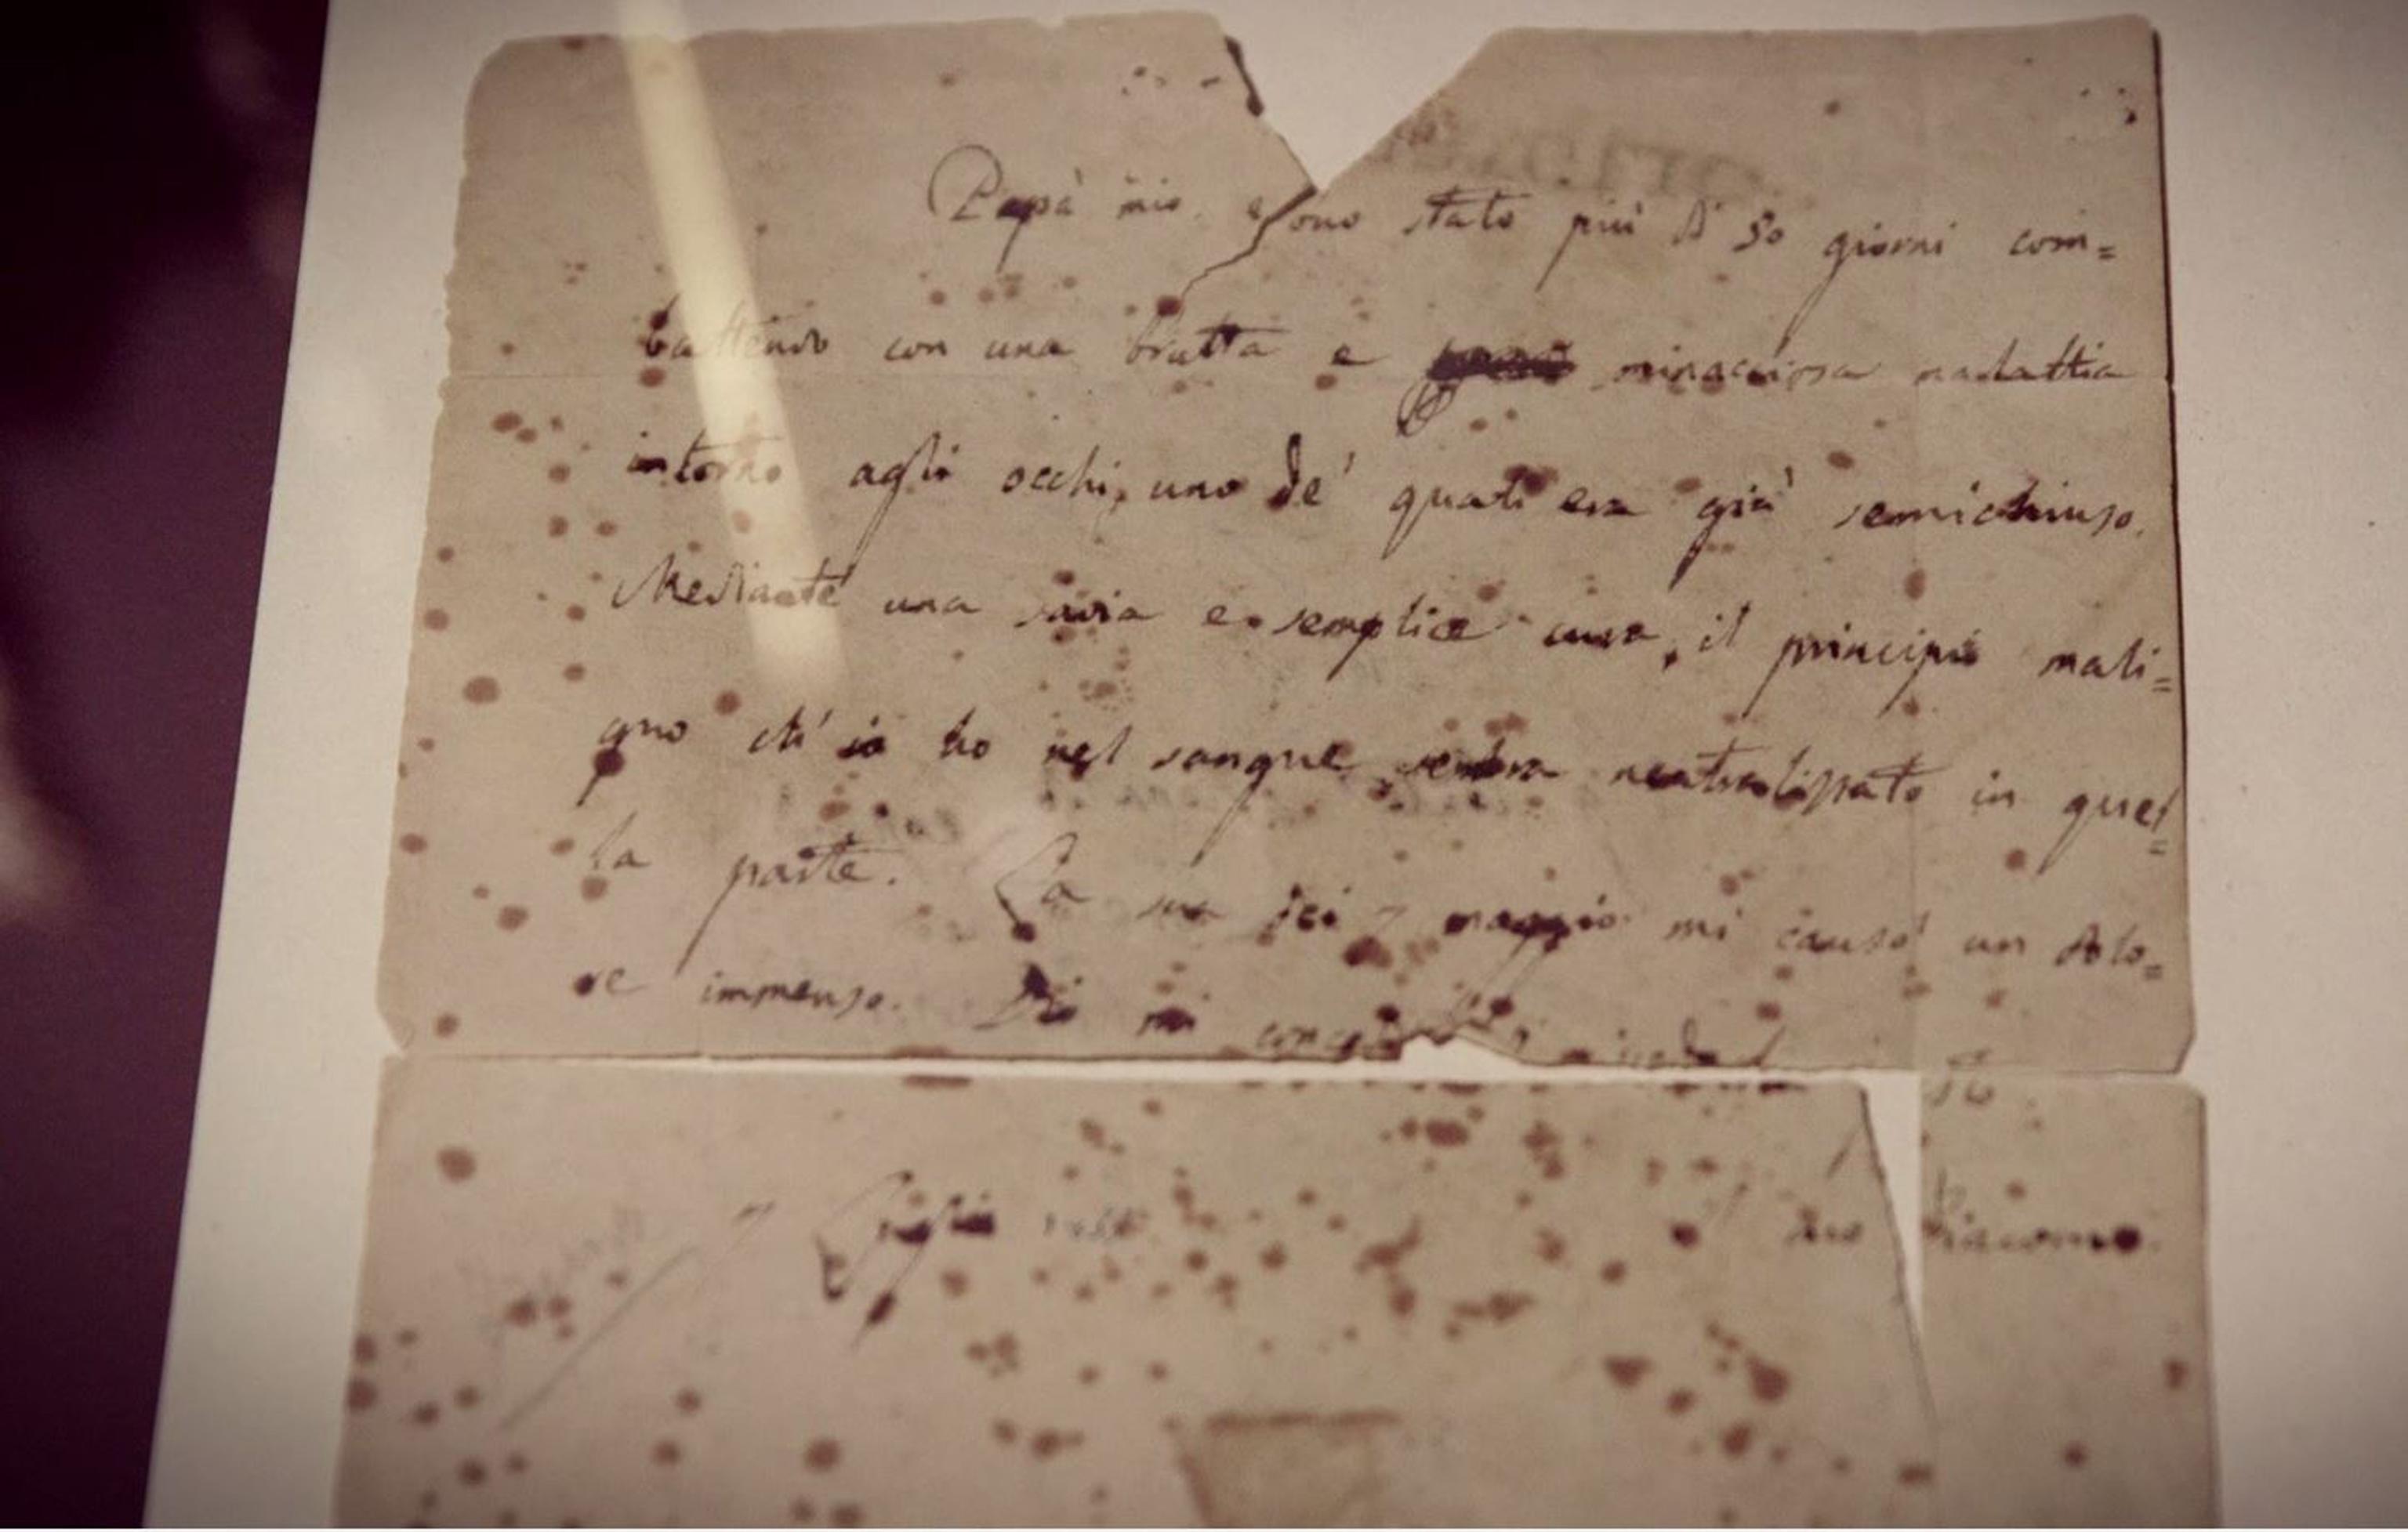 Papà mio, sono stato più di 50 giorni com=
battendo con una brutta e minacciosa malattia
intorno agli occhi, uno de' quali era già semichiuso.
Mediante una savia e semplice cura, il principio mali=
gno ch'io ho nel sangue sembra neutralizzato in quel=
la parte. La sua dei 7 maggio mi causò un dolo=
re immenso. Dio mi
suo Giacomo.